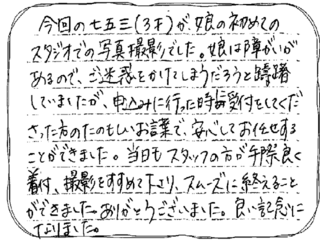 今回の七五三(3才)が、娘の初めての
スタジオでの写真撮影でした。娘は障がいが
あるので、ご迷惑をかけてしまうだろうと躊躇
していましたが、申込みに行った時、受付をしてくだ
さった方のたのもしいお言葉で、安心してお任せする
ことができました。当日もスタッフの方が手際良く
着付、撮影をすすめて下さり、スムーズに終えること
ができました。ありがとうございました。良い記念に
なりました。